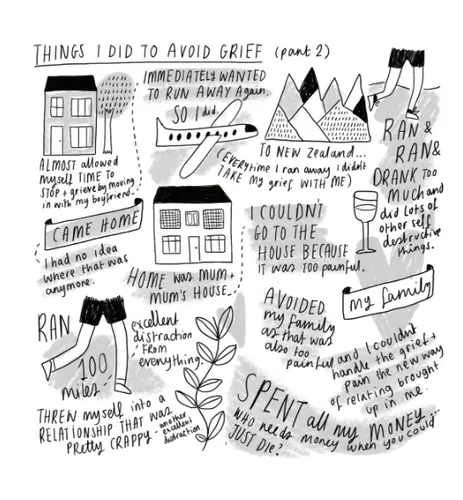 THINGS I DID TO AVOID GRIEF (part 2)
ALMOST allowed
myself TIME TO
STOP + grieve by moving
in with my boyfriend.
IMMEDIATELY WANTED
TO RUN AWAY Again.
SO I did.
TO NEW ZeaLAND...
(EVERYtime I ran away I didn't
TAKE my grief WITH ME)
RAN &
RAN &
DRANK too
much and
did lots of
other self
destructive
things.
CAME HOME
I had no idea
where that was
anymore.
HOME was MUM +
MUM'S HOUSE.
I COULDN'T
GO TO THE
HOUSE BECAUSE
IT WAS TOO PAINFUL.
my family
AVOIDED
my family
as that was
also too
painful and I couldn't
handle the grief +
pain the new way
of relating brought
up in me.
RAN
100
miles
excellent
distraction
FROM
everything.
THREW myself into a
RELATIONSHIP THAT WAS
PRETTY CRAPPY - another
excellent
distraction
SPENT all my MONEY...
WHO needs money when you could
JUST DIE?